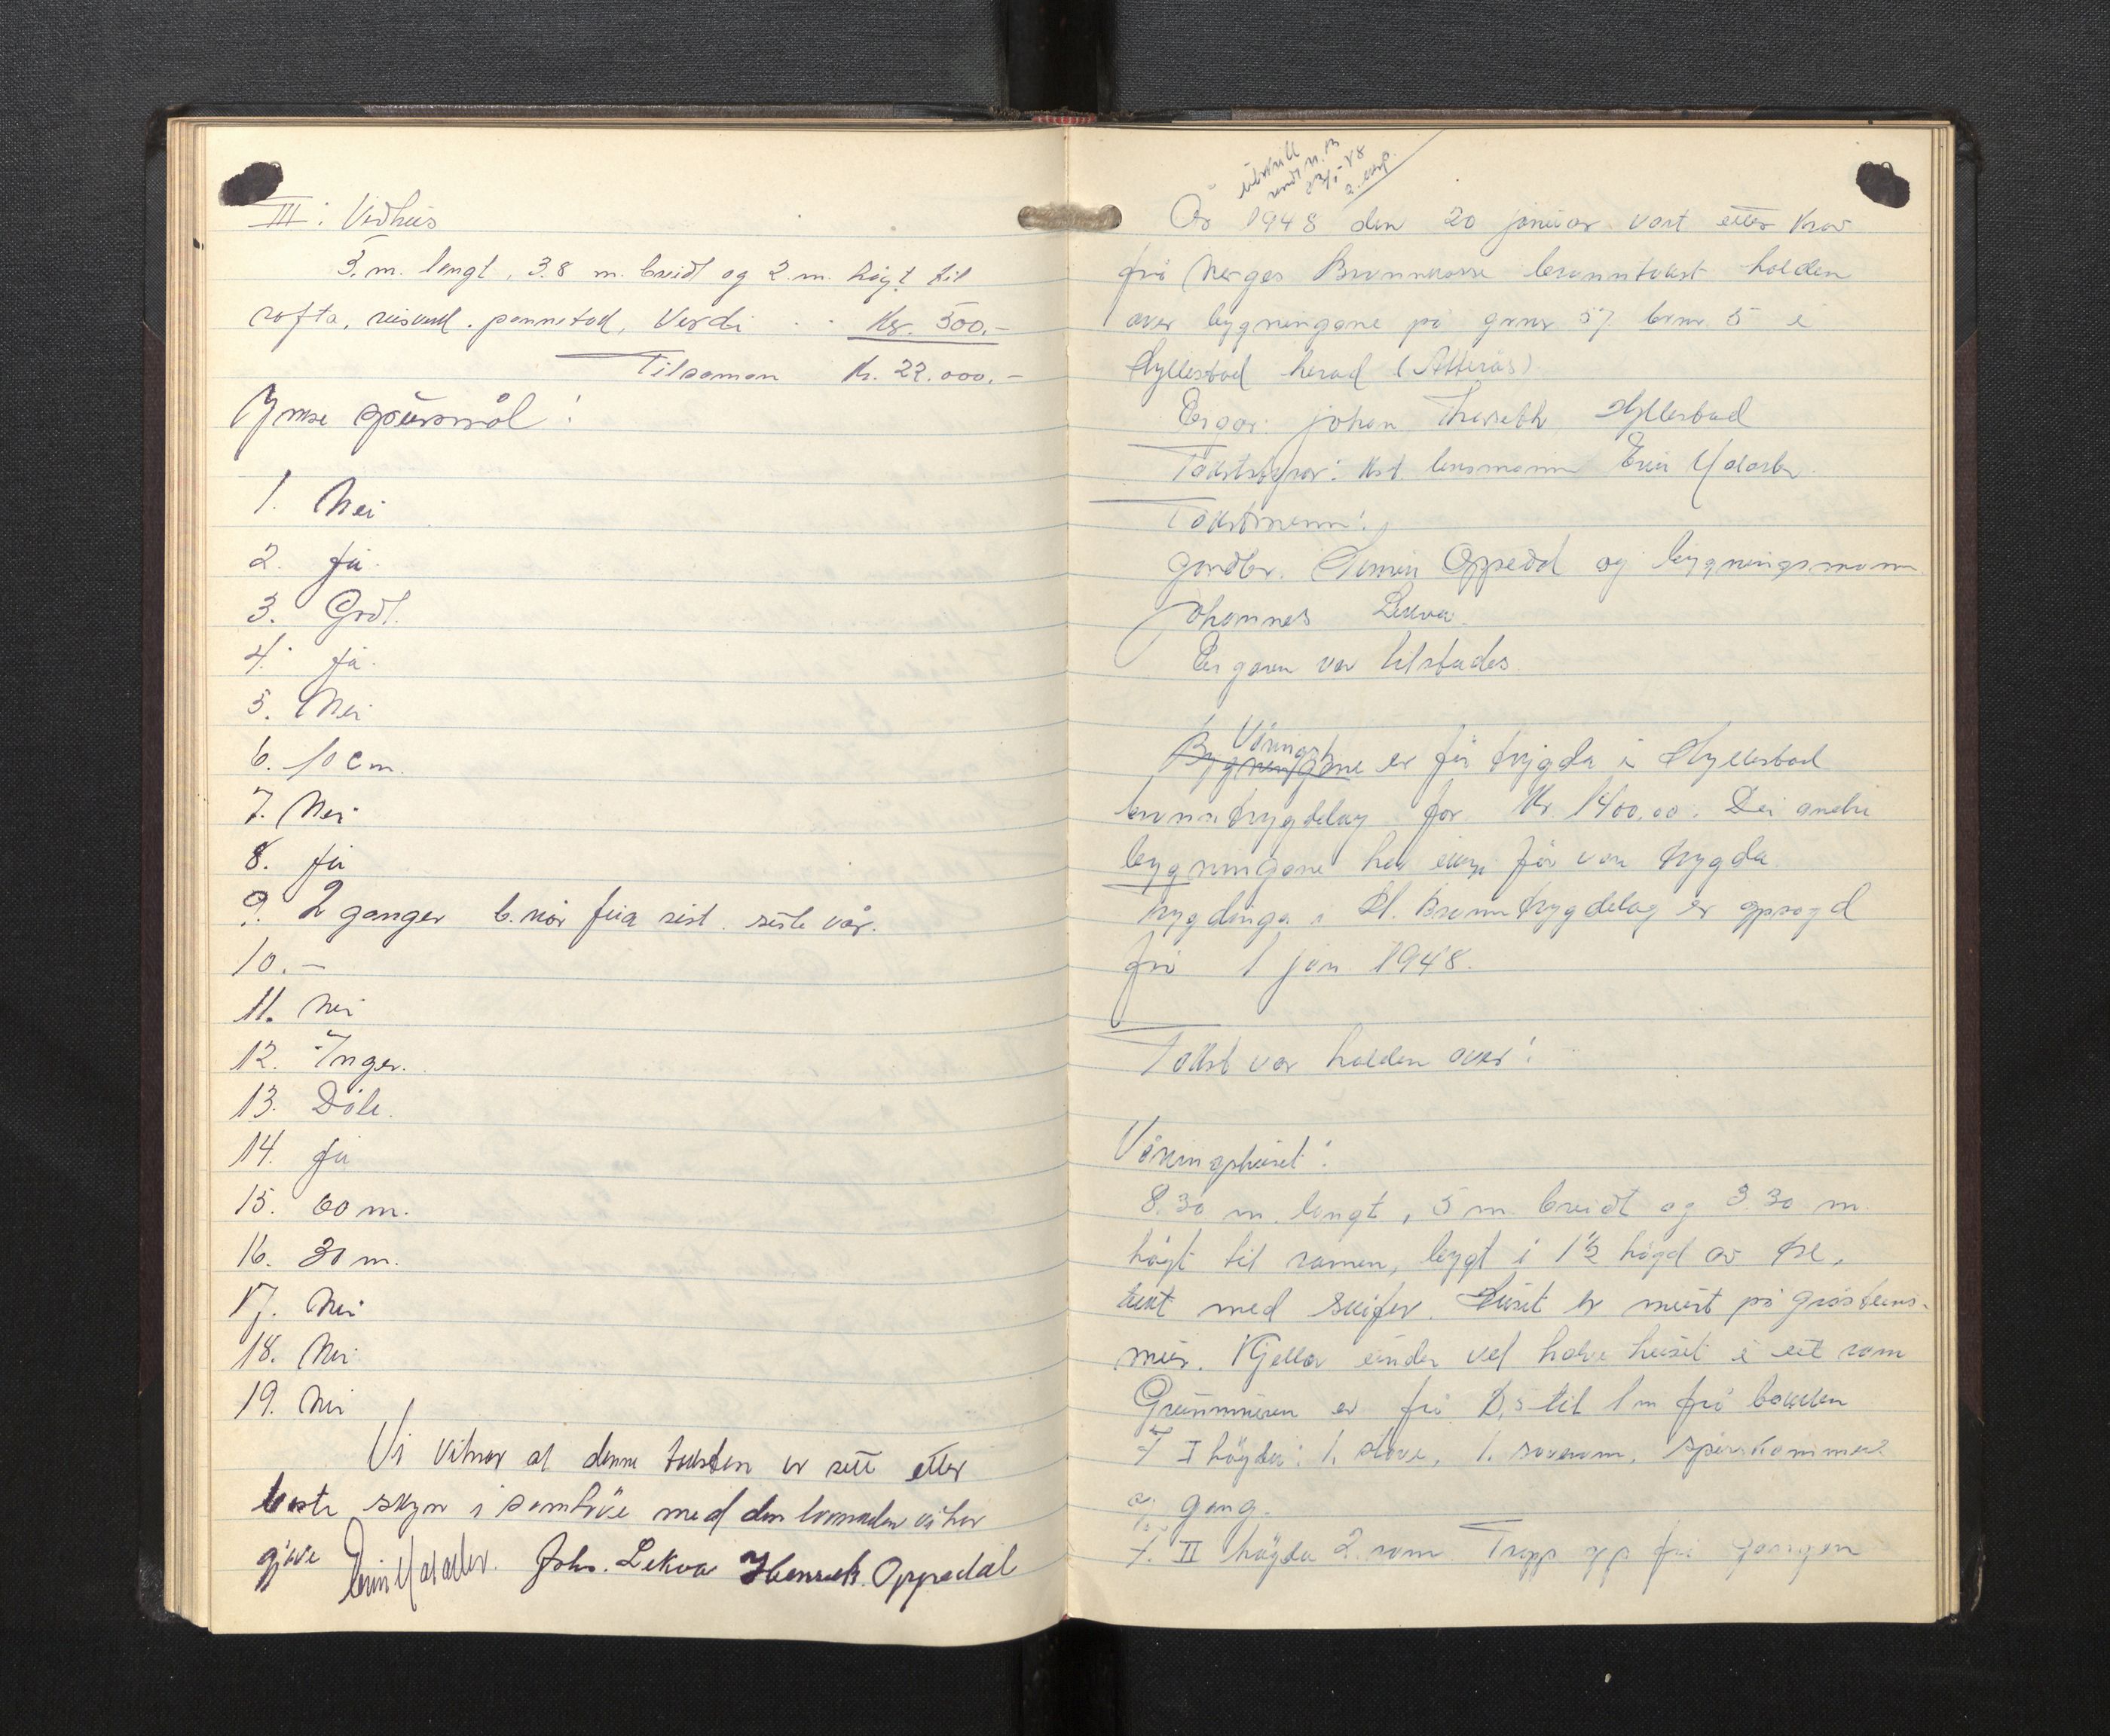 III: Vedhus
5. m. langt, 3.8 m. breidt og 2. m. högt til
rofta, reisverk. pannetak, Verdi . . Kr. 500.-
Tilsaman Kr. 22.000.-
Ymse spursmål:
1. Nei
2. Ja.
3. Godt.
4. Ja.
5. Nei
6. 10 cm.
7. Nei
8. Ja
9. 2 ganger b. når feia sist. siste vår.
10. -
11. Nei
12. Ingen.
13. Dåle.
14. Ja
15. 60 m.
16. 30 m.
17. Nei
18. Nei
19. Nei
Vi vitnar at denne taksten er sett etter
beste skyn i samhöve med den lovnaden vi har
gjeve Johs. Lekva Henrik Oppedal
utskrift
sendt N.B
23/1-48
2. eksp.
År 1948 den 20 januar vart etter krav
frå Norges Brannkasse branntakst halden
over bygningane på gnr 57 brnr. 5 i
Hyllestad herad (Atterås)
Eigar: Johan Hyllestad
Takststyrar: Kst. lensmann
Takstmenn:
gardbr. Oppedal og bygningsmann
Johannes Lekva.
Eigaren var tilstades.
Våningsh.
Bygningane er før trygda i Hyllestad
branntrygdelag for Kr. 1400,00. Dei andre
bygningane har ikkje før vore trygda
Trygdinga i Hl. Branntrygdelag er uppsagd
frå 1 jan 1948.
Takst var halden over:
Våningshuset:
8.30 m. langt, 5 m breidt og 3.30 m.
högt til ramen, bygt i 1½ högd av tre,
tekt med skifer. Huset er murt på gråsteins-
mur. Kjellar under vel halve huset i eit rom
Grunnmuren er frå 0,5 til 1 m frå bakken
I I högda: 1. stove, 1. soverom, spiskammer
og gang.
I. II högda 2 rom Trapp upp frå gangen